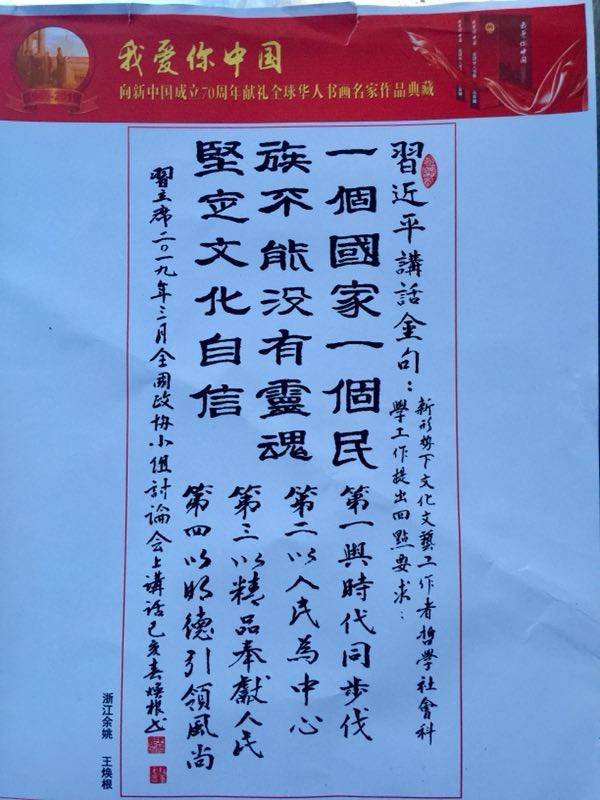 我爱你中国
向新中国成立70周年献礼全球华人书画名家作品典藏
習近平講話金句：
新形势下文化文藝工作者哲學社會科
學工作提出四點要求：
一個國家一個民
族不能没有靈魂
堅定文化自信
第一與時代同步伐
第二以人民為中心
第三以精品奉獻人民
第四以明德引領風尚
習主席二〇一九年三月全國政协小组討論会上講话己亥春焕根书
浙江余姚 王焕根